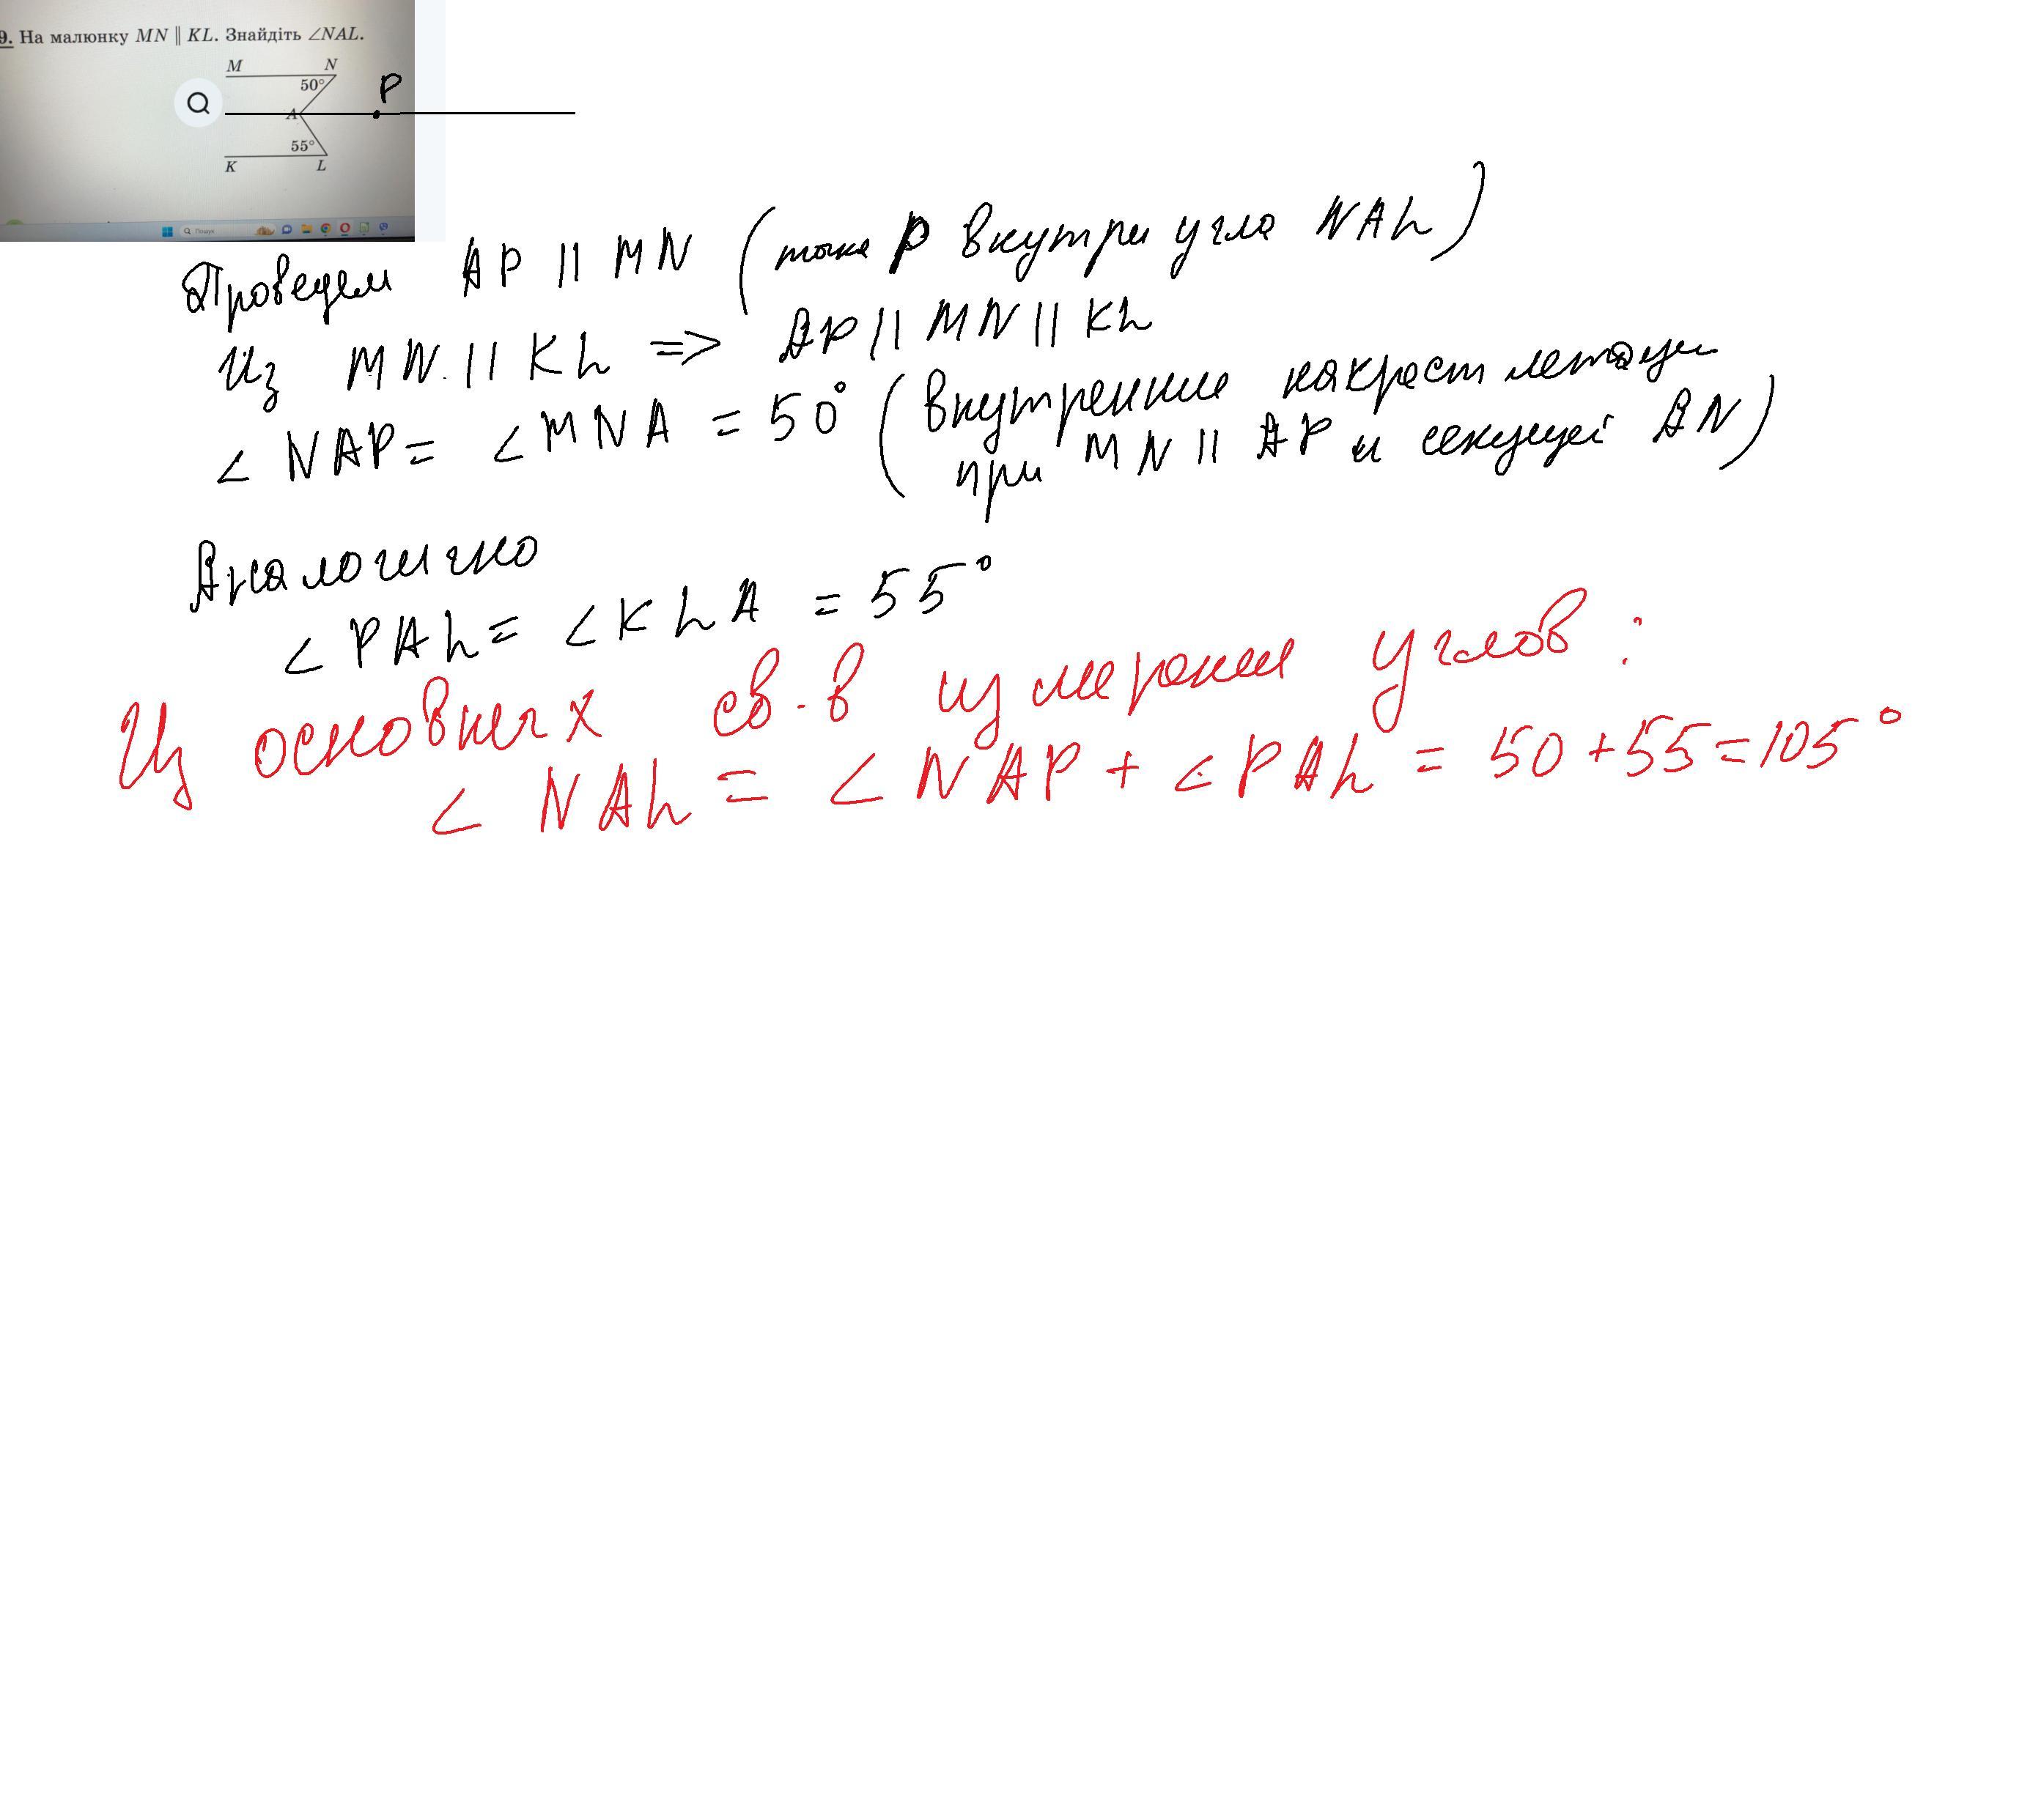 9. На малюнку MN ∥ KL. Знайдіть ∠NAL.
M N
50°
P
A
55°
K L
Пошук
Проведем AP || MN (точка P внутри угла NAL)
Из MN || KL => AP || MN || KL
∠NAP = ∠MNA = 50° (внутренние накрест лежащие
при MN || AP и секущей AN)
Аналогично
∠PAL = ∠KLA = 55°
Из основных св-в измерения углов:
∠NAL = ∠NAP + ∠PAL = 50 + 55 = 105°